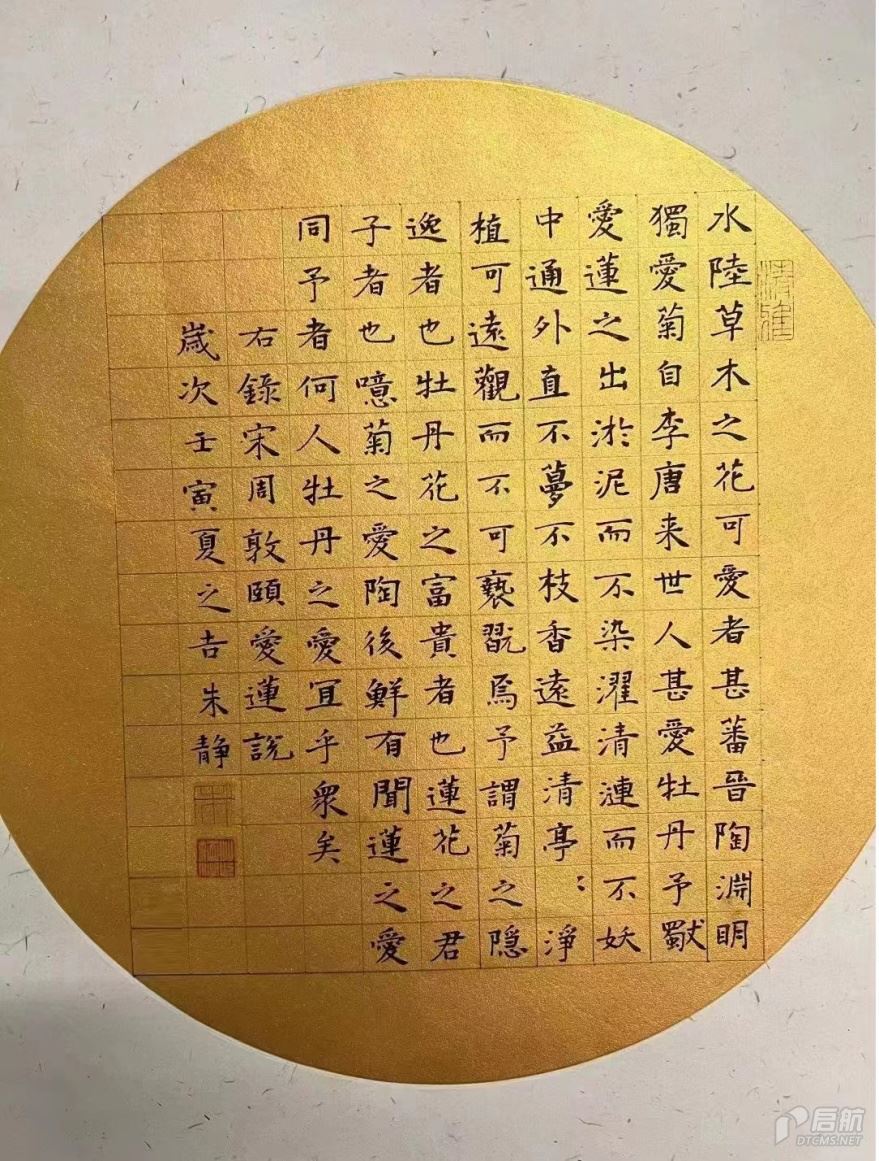 清雅
水陸草木之花可愛者甚蕃晉陶淵明
獨愛菊自李唐来世人甚愛牡丹予獨
愛蓮之出淤泥而不染濯清漣而不妖
中通外直不蔓不枝香遠益清亭〻淨
植可遠觀而不可褻翫焉予謂菊之隠
逸者也牡丹花之富貴者也蓮花之君
子者也噫菊之愛陶後鮮有聞蓮之愛
同予者何人牡丹之愛宜乎衆矣
右錄宋周敦頤愛蓮說
歲次壬寅夏之吉朱静
启航
DTCMS.NET